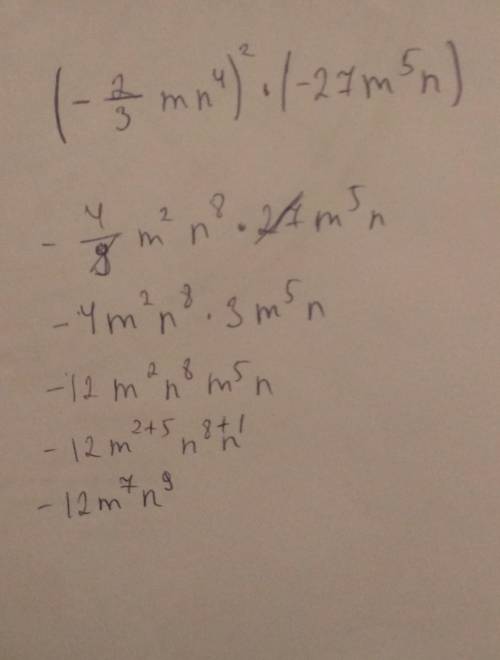 (-2/3 mn⁴)² · (-27m⁵n)
- 4/9 m² n⁸ · 27m⁵n
-4m²n⁸ · 3m⁵n
-12 m²n⁸ m⁵n
-12m²⁺⁵ n⁸⁺¹
-12m⁷n⁹